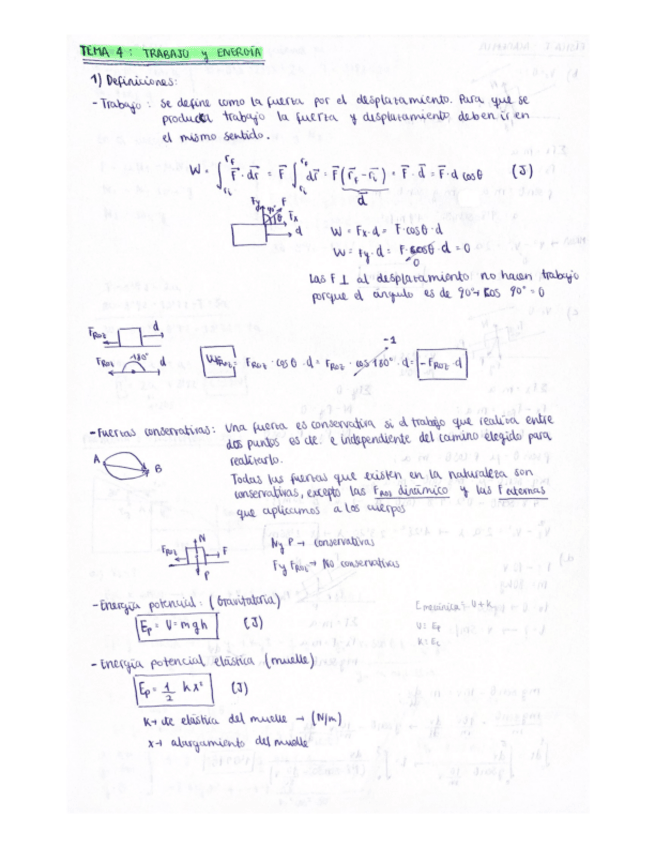 TEMA 4: TRABAJO y ENERGÍA
1) Definiciones:
- Trabajo: se define como la fuerza por el desplazamiento. Para que se
produzca trabajo la fuerza y desplazamiento deben ir en
el mismo sentido.
W = ∫_{r_i}^{r_F} F̄ · dr̄ = F̄ ∫_{r_i}^{r_F} dr̄ = F̄ (r̄_F - r̄_i) = F̄ · d̄ = F̄ · d cos θ (J)
d̄
Fy 90° F
θ Fx
d
W = Fx · d = F · cos θ · d
W = Fy · d = F · cosθ · d = 0
0
Las F ⊥ al desplazamiento no hacen trabajo
porque el ángulo es de 90° → cos 90° = 0
F_ROZ d
F_ROZ 180° d
-1
W_FROZ = F_ROZ · cos θ · d = F_ROZ · cos 180° · d = -F_ROZ · d
- Fuerzas conservativas: Una fuerza es conservativa si el trabajo que realiza entre
dos puntos es de e independiente del camino elegido para
realizarlo.
A B
Todas las fuerzas que existen en la naturaleza son
conservativas, excepto las F_ROZ dinámico y las F externas
que aplicamos a los cuerpos
N
F_ROZ F
P
N y P → conservativas
F y F_ROZ → No conservativas
- Energía potencial: (Gravitatoria)
Ep = U = mgh (J)
E mecánica = U + K
U = Ep
K = Ec
- Energía potencial elástica (muelle)
Ep = 1/2 kx² (J)
K → de elástica del muelle → (N/m)
x → alargamiento del muelle